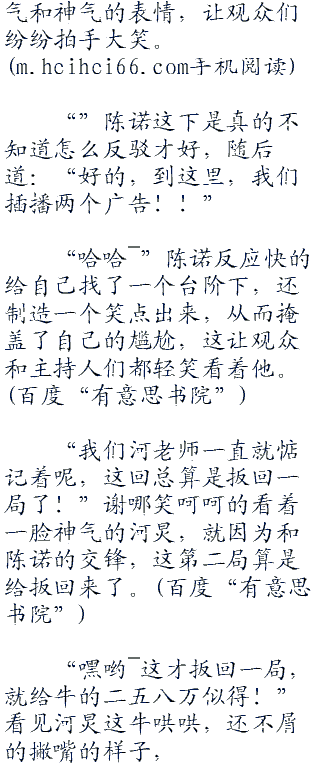 气和神气的表情，让观众们
纷纷拍手大笑。
(m.hcihci66.com手机阅读)
“”陈诺这下是真的不
知道怎么反驳才好，随后
道：“好的，到这里，我们
插播两个广告！！”
“哈哈¯”陈诺反应快的
给自己找了一个台阶下，还
制造一个笑点出来，从而掩
盖了自己的尴尬，这让观众
和主持人们都轻笑看着他。
(百度“有意思书院”)
“我们河老师一直就惦
记着呢，这回总算是扳回一
局了！”谢哪笑呵呵的看着
一脸神气的河炅，就因为和
陈诺的交锋，这第二局算是
给扳回来了。(百度“有意思
书院”)
“嘿哟¯这才扳回一局，
就给牛的二五八万似得！”
看见河炅这牛哄哄，还不屑
的撇嘴的样子，